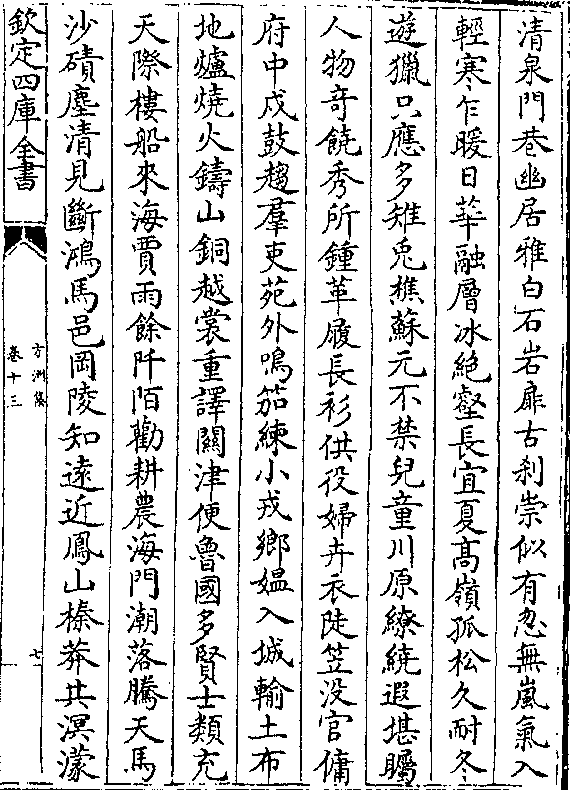 清泉門巷幽居雅白石岩扉古刹崇似有忽無嵐氣入
輕寒乍暖日華融層冰絶壑長宜夏髙嶺孤松久耐冬
遊獵只應多雉兎樵蘇元不禁兒童川原繚繞遐堪矚
人物竒饒秀所鍾革履長衫供役婦卉衣陡笠没官傭
府中戍鼓趨羣吏苑外鳴笳練小戎鄉媼入城輸土布
地爐燒火鑄山銅越裳重譯關津便魯國多賢士類充
天際樓船來海賈雨餘阡陌勸耕農海門潮落騰天馬
沙磧塵清見斷鴻馬邑岡陵知逺近鳳山榛莽共溟濛
欽定四庫全書
方洲集
卷十三
七